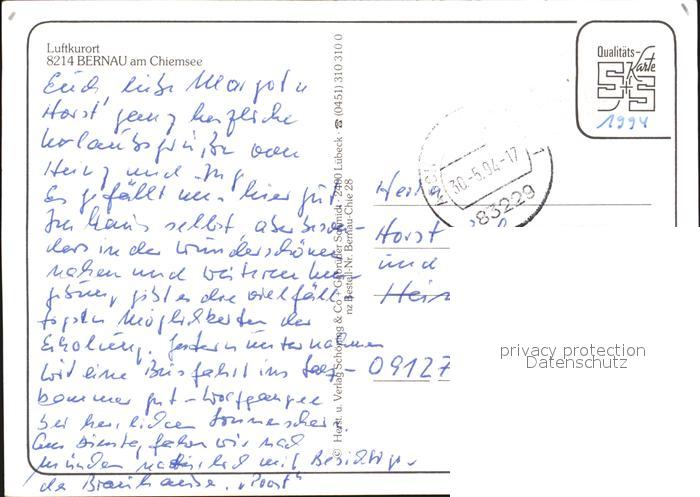 Luftkurort
8214 BERNAU am Chiemsee
Euch, liebe Margot u
Horst ganz herzliche
Urlaubsgrüße von
Heinz und
Es gefällt uns hier gut
Im Haus selbst, aber beson-
ders in der wunderschönen
nahen und weiteren Um-
gebung, gibt es die vielfäl-
tigsten Möglichkeiten der
Erholung. Gestern unternahmen
wir eine Busfahrt ins Salz-
kammergut - Wolfgangsee
bei herrlichem Sonnenschein.
Am Dienstag fahren wir nach
München natürlich mit Besichtigu-
des Brauhauses "Post"
© Horst u. Verlag Schöning & Co + Gebrüder Schmidt · 2400 Lübeck · ☎ (0451) 310 310 0
nz Bestell-Nr. Bernau-Chie 28
Qualitäts-
Karte
S+S
1994
30.-5.94-17
83229
Horst
und
09127
privacy protection
Datenschutz